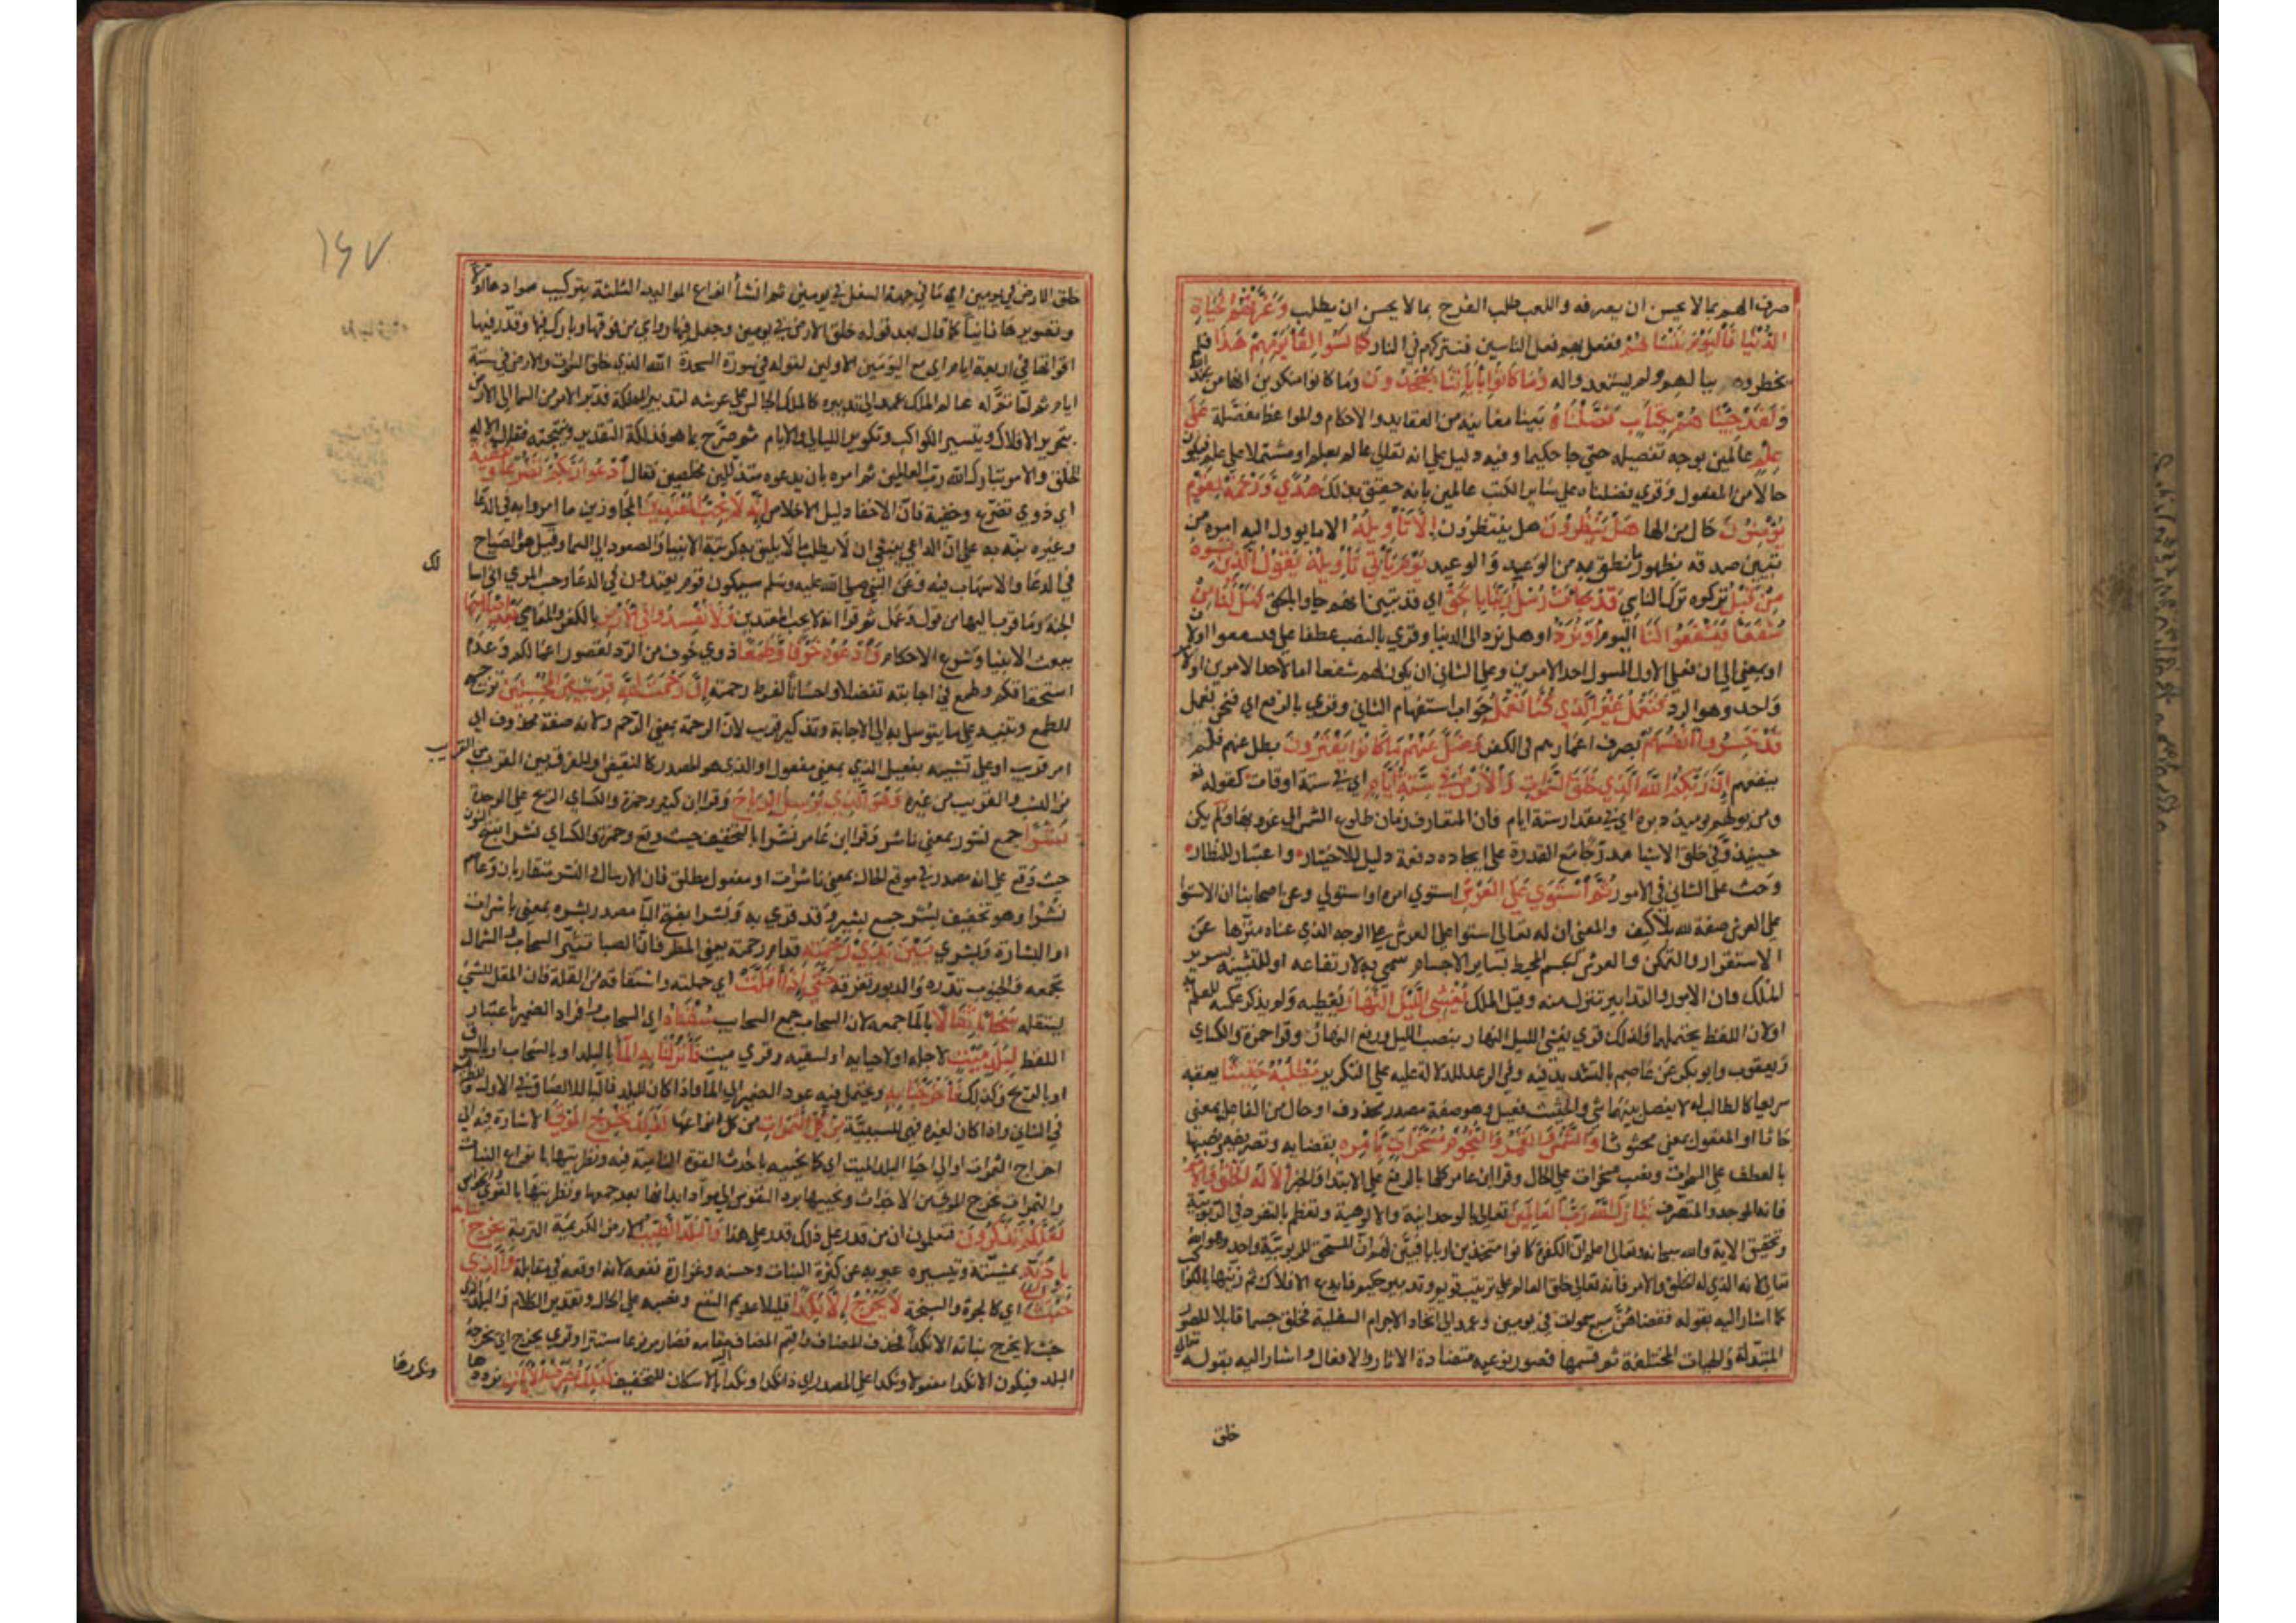 صرف الهم بما لا يحسن ان يصرف به واللعب طلب الفرح بما لا يحسن ان يطلب وَغَرَّتْهُمُ الْحَيَاةُ
الدُّنْيَا فَالْيَوْمَ نَنْسَاهُمْ نفعل بهم فعل الناسين فنتركهم في النار كَمَا نَسُوا لِقَاءَ يَوْمِهِمْ هَذَا فلم
يخطروه ببالهم ولم يستعدوا له وَمَا كَانُوا بِآيَاتِنَا يَجْحَدُونَ وما كانوا منكرين انها من عند الله
وَلَقَدْ جِئْنَاهُمْ بِكِتَابٍ فَصَّلْنَاهُ بينا معانيه من العقايد والاحكام والمواعظ مفصلة عَلَى
عِلْمٍ عالمين بوجه تفصيله حتى جا حكيما وفيه دليل على انه تعالى عالم بعلم او مشتملا على علم فيكون
حالا من المفعول وقري فضلناه على ساير الكتب عالمين بانه حقيق بذلك هُدًى وَرَحْمَةً لِقَوْمٍ
يُؤْمِنُونَ حال من الها هَلْ يَنْظُرُونَ هل ينتظرون إِلَّا تَأْوِيلَهُ الا ما يوول اليه امره من
تبيين صدقه بظهور ما نطق به من الوعد والوعيد يَوْمَ يَأْتِي تَأْوِيلُهُ يَقُولُ الَّذِينَ نَسُوهُ
مِنْ قَبْلُ تركوه ترك الناسي قَدْ جَاءَتْ رُسُلُ رَبِّنَا بِالْحَقِّ اي قد تبين انهم جاوا بالحق فَهَلْ لَنَا مِنْ
شُفَعَاءَ فَيَشْفَعُوا لَنَا اليوم أَوْ نُرَدُّ او هل نرد الى الدنيا وقري بالنصب عطفا على فيشفعوا او لان
او بمعنى الى ان فعلى الاول المسول احد الامرين وعلى الثاني ان يكون لهم شفعا اما لاحد الامرين او لامر
واحد وهو الرد فَنَعْمَلَ غَيْرَ الَّذِي كُنَّا نَعْمَلُ جواب استفهام الثاني وقري بالرفع اي فنحن نعمل
قَدْ خَسِرُوا أَنْفُسَهُمْ بصرف اعمارهم في الكفر وَضَلَّ عَنْهُمْ مَا كَانُوا يَفْتَرُونَ بطل عنهم فلم
ينفعهم إِنَّ رَبَّكُمُ اللَّهُ الَّذِي خَلَقَ السَّمَوَاتِ وَالْأَرْضَ فِي سِتَّةِ أَيَّامٍ اي في ستة اوقات كقوله
ومن يولهم يوميذ دبره اي في مقدار ستة ايام فان المتعارف زمان طلوع الشمس الى غروبها ولم يكن
حينيذ وفي خلق الاشيا مدرجا مع القدرة على ايجاده دفعة دليل للاختيار واعتبار للنظار
وحث على التاني في الامور ثُمَّ اسْتَوَى عَلَى الْعَرْشِ استوي امره او استولي وعن اصحابنا ان الاستوا
على العرش صفة لله بلا كيف والمعنى ان له تعالى استوا على العرش على الوجه الذي عناه منزها عن
الاستقرار والتمكن والعرش الجسم المحيط بساير الاجسام سمي به لارتفاعه او للتشبيه بسرير
الملك فان الامور والتدابير تنزل منه وقيل الملك يُغْشِي اللَّيْلَ النَّهَارَ يغطيه به ولم يذكر عكسه للعلم به
او لان اللفظ يحتملهما ولذلك قري يغشى الليل النهار بنصب الليل ورفع النهار وقرا حمزة والكساي
ويعقوب وابو بكر عن عاصم بالتشديد فيه وفي الرعد للدلالة على التكرير يَطْلُبُهُ حَثِيثًا يعقبه
سريعا كالطالب له لا يفصل بينهما شي والحثيث فعيل وهو صفة مصدر محذوف او حال من الفاعل بمعنى
حاثا او المفعول بمعنى محثوثا وَالشَّمْسَ وَالْقَمَرَ وَالنُّجُومَ مُسَخَّرَاتٍ بِأَمْرِهِ بقضايه وتصريفه ونصبها
بالعطف على السموات ونصب مسخرات على الحال وقرا ابن عامر كلها بالرفع على الابتدا والخبر أَلَا لَهُ الْخَلْقُ وَالْأَمْرُ
فانه الموجد والمتصرف تَبَارَكَ اللَّهُ رَبُّ الْعَالَمِينَ تعالى بالوحدانية والالوهية وتعظم بالتفرد في الربوبية
وتحقيق الاية والله سبحانه وتعالى اعلم ان الكفرة كانوا متخذين اربابا فبين لهم ان المستحق للربوبية واحد وهو الله
تعالى لانه الذي له الخلق والامر فانه تعالى خلق العالم على ترتيب قويم وتدبير حكيم فابدع الافلاك ثم زينها بالكواكب
كما اشار اليه بقوله فقضاهن سبع سموات في يومين وعمد الى اتخاد الاجرام السفلية فخلق جسما قابلا للصور
المتبدلة والهيات المختلفة ثم قسمها بصور نوعيه متضادة الاثار والافعال واشار اليه بقوله تعالى
خلق
١٤٧
خلق الارض في يومين اي ما في جهة السفل في يومين ثم انشأ انواع المواليد الثلثة بتركيب موادها اولا
وتصويرها ثانيا كما قال بعد قوله خلق الارض في يومين وجعل فيها رواسي من فوقها وبارك فيها وقدر فيها
اقواتها في اربعة ايام اي مع اليومين الاولين لقوله في سورة السجدة الله الذي خلق السموات والارض في ستة
ايام ثم لما تم له عالم الملك عمد الى تدبيره كالملك الجالس على عرشه لتدبير المملكة فدبر الامر من السما الى الارض
بتحريك الافلاك وتسيير الكواكب وتكوير الليالي والايام ثم صرح بما هو فذلكة التقدير ونتيجته فقال الا له
الخلق والامر تبارك الله رب العالمين ثم امرهم بان يدعوه متذللين مخلصين فقال ادْعُوا رَبَّكُمْ تَضَرُّعًا وَخُفْيَةً
اي ذوي تضرع وخفية فان الاخفا دليل الاخلاص إِنَّهُ لَا يُحِبُّ الْمُعْتَدِينَ المجاوزين ما امروا به في الدعا
وغيره نبه به على ان الداعي ينبغي ان لا يطلب ما لا يليق به كرتبة الانبيا والصعود الى السما وقيل هو الصياح
في الدعا والاسهاب فيه وعن النبي صلى الله عليه وسلم سيكون قوم يعتدون في الدعا وحسب المرء ان
لك
الجنة وما قرب اليها من قول وعمل ثم قرا انه لا يحب المعتدين وَلَا تُفْسِدُوا فِي الْأَرْضِ بالكفر والمعاصي بَعْدَ إِصْلَاحِهَا
ببعث الانبيا وشرع الاحكام وَادْعُوهُ خَوْفًا وَطَمَعًا ذوي خوف من الرد لقصور اعمالكم وعدم
استحقاقكم وطمع في اجابته تفضلا واحسانا لفرط رحمته إِنَّ رَحْمَتَ اللَّهِ قَرِيبٌ مِنَ الْمُحْسِنِينَ ترجيح
للطمع وتنبيه على ما يتوسل به الى الاجابة وتذكير قريب لان الرحمة بمعنى الرحم ولانه صفة محذوف اي
امر قريب او على تشبيهه بفعيل الذي بمعنى مفعول او الذي هو المصدر كالنقيض او للفرق بين القريب
من النسب والقريب من غيره وَهُوَ الَّذِي يُرْسِلُ الرِّيَاحَ وقرا ابن كثير وحمزة والكساي الريح على الوحدة
نُشُرًا جمع نشور بمعنى ناشر وقرا ابن عامر نشرا بالتخفيف حيث وقع وحمزة والكساي نشرا بفتح النون
حيث وقع على انه مصدر في موقع الحال بمعنى ناشرات او مفعول مطلق فان الارسال والنشر متقاربان وعاصم
بشرا وهو تخفيف بشر جمع بشير وقد قري به وبشرا بفتح البا مصدر بشره بمعنى باشرات
او للبشارة وبشري بَيْنَ يَدَيْ رَحْمَتِهِ قدام رحمته يعني المطر فان الصبا تثير السحاب والشمال
تجمعه والجنوب تدره والدبور تفرقه حَتَّى إِذَا أَقَلَّتْ اي حملته واشتقاقه من القلة فان المقل للشي
يستقله سَحَابًا ثِقَالًا بالما جمعه لان السحاب جمع السحايب سُقْنَاهُ اي السحاب وافراد الضمير باعتبار
اللفظ لِبَلَدٍ مَيِّتٍ لاجله او لاحيايه او لسقيه وقري ميت فَأَنْزَلْنَا بِهِ الْمَاءَ بالبلد او بالسحاب او بالسوق
او بالريح وكذلك فَأَخْرَجْنَا بِهِ ويحتمل فيه عود الضمير الى الما واذا كان للبلد فالبا للالصاق في الاول وللظرفية
في الثاني واذا كان لغيره فهي للسببية مِنْ كُلِّ الثَّمَرَاتِ من كل انواعها كَذَلِكَ نُخْرِجُ الْمَوْتَى الاشارة فيه الى
اخراج الثمرات او الى احيا البلد الميت اي كما نحييه باحداث القوة النامية فيه وتطريتها بانواع النبات
والثمرات نخرج الموتى من الاجداث ونحييها برد النفوس الى مواد ابدانها بعد جمعها وتطريتها بالقوي والحواس
لَعَلَّكُمْ تَذَكَّرُونَ فتعلمون ان من قدر على ذلك قدر على هذا وَالْبَلَدُ الطَّيِّبُ الارض الكريمة التربة يَخْرُجُ نَبَاتُهُ
بِإِذْنِ رَبِّهِ بمشيته وتيسيره عبر به عن كثرة النبات وحسنه وغزارة نفعه لانه اوقعه في مقابلة وَالَّذِي
خَبُثَ اي كالحرة والسبخة لَا يَخْرُجُ إِلَّا نَكِدًا قليلا عديم النفع ونصبه على الحال وتقدير الكلام والبلد الذي
خبث لا يخرج نباته الا نكدا فحذف المضاف واقيم المضاف اليه مقامه فصار مرفوعا مستترا وقري يخرج اي يخرجه
البلد فيكون الا نكدا مفعولا ونكدا على المصدر اي ذا نكد ونكدا بالاسكان للتخفيف كَذَلِكَ نُصَرِّفُ الْآيَاتِ نرددها
ونكررها